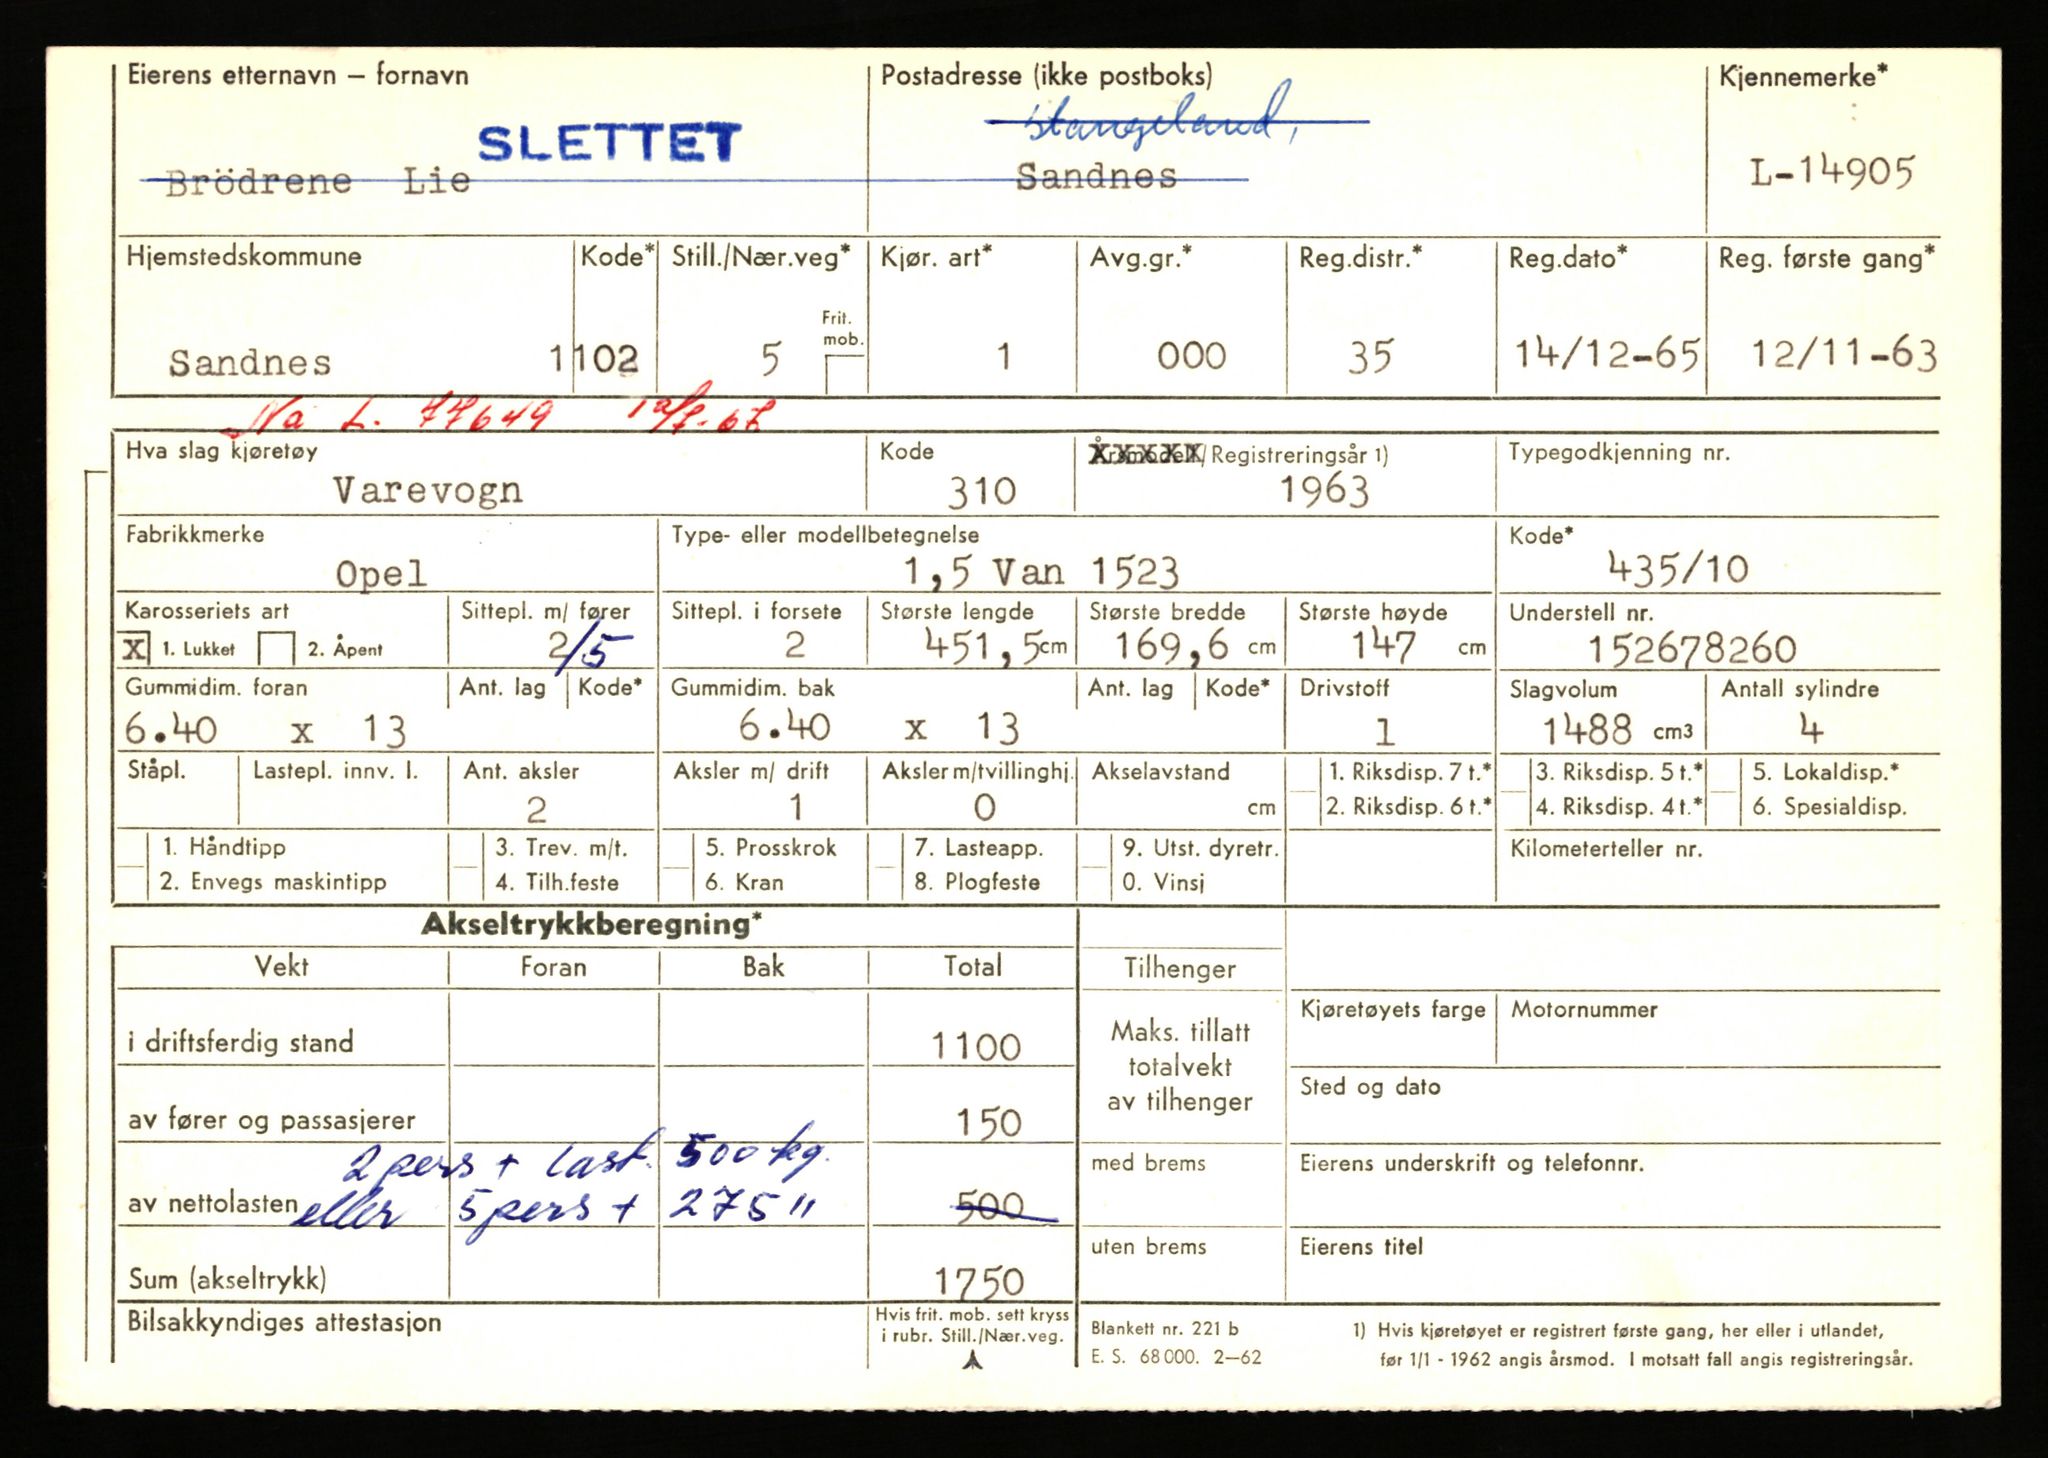 Eierens etternavn – fornavn Postadresse (ikke postboks) Kjennemerke*
Stangeland,
SLETTET
Brödrene Lie Sandnes L-14905
Hjemstedskommune Kode* Still./Nær.veg* Kjør. art* Avg.gr.* Reg.distr.* Reg.dato* Reg. første gang*
Frit. mob.
Sandnes 1102 5 1 000 35 14/12-65 12/11-63
Nå L. 77649
Hva slag kjøretøy Kode Årsmodell/Registreringsår 1) Typegodkjenning nr.
Varevogn 310 1963
Fabrikkmerke Type- eller modellbetegnelse Kode*
Opel 1,5 Van 1523 435/10
Karosseriets art Sittepl. m/ fører Sittepl. i forsete Største lengde Største bredde Største høyde Understell nr.
X 1. Lukket 2. Åpent 2/5 2 451,5cm 169,6 cm 147 cm 152678260
Gummidim. foran Ant. lag Kode* Gummidim. bak Ant. lag Kode* Drivstoff Slagvolum Antall sylindre
6.40 x 13 6.40 x 13 1 1488 cm3 4
Ståpl. Lastepl. innv. l. Ant. aksler Aksler m/ drift Aksler m/tvillinghj. Akselavstand 1. Riksdisp. 7 t.* 3. Riksdisp. 5 t.* 5. Lokaldisp.*
2 1 0 cm 2. Riksdisp. 6 t.* 4. Riksdisp. 4 t.* 6. Spesialdisp.
1. Håndtipp 3. Trev. m/t. 5. Prosskrok 7. Lasteapp. 9. Utst. dyretr. Kilometerteller nr.
2. Envegs maskintipp 4. Tilh.feste 6. Kran 8. Plogfeste 0. Vinsj
Akseltrykkberegning*
Vekt Foran Bak Total Tilhenger
Kjøretøyets farge Motornummer
i driftsferdig stand 1100 Maks. tillatt
totalvekt
Sted og dato
av tilhenger
av fører og passasjerer 150
2 pers + last. 500 kg.
med brems Eierens underskrift og telefonnr.
av nettolasten eller 5 pers + 275 " 500
uten brems Eierens titel
Sum (akseltrykk) 1750
Bilsakkyndiges attestasjon Hvis frit. mob. sett kryss
i rubr. Still./Nær.veg.
Blankett nr. 221 b 1) Hvis kjøretøyet er registrert første gang, her eller i utlandet,
E. S. 68 000. 2–62 før 1/1 - 1962 angis årsmod. I motsatt fall angis registreringsår.